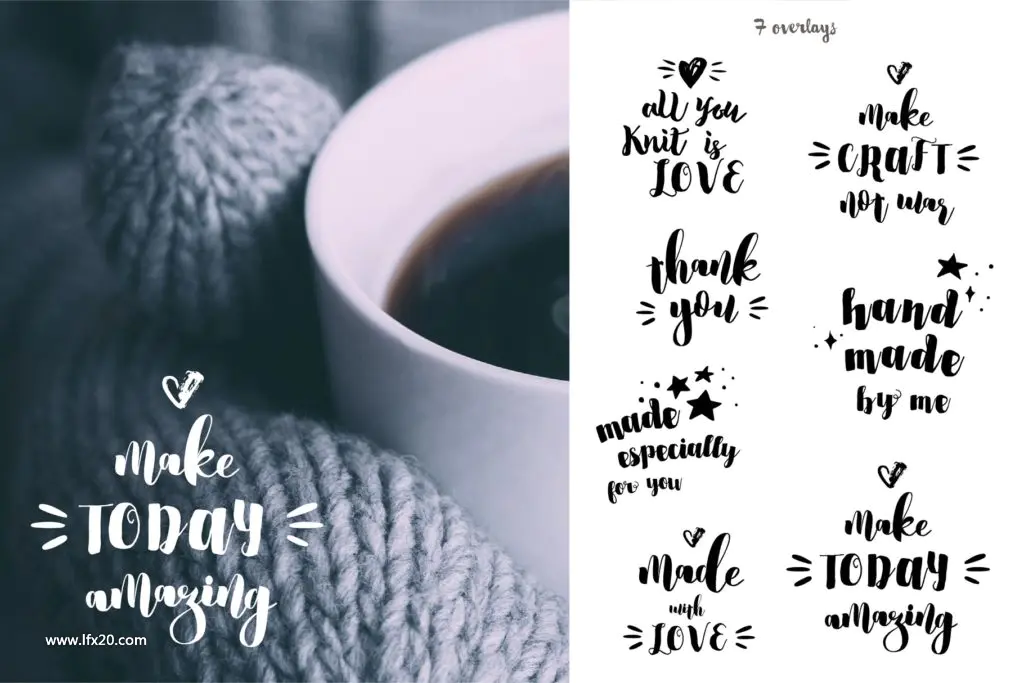 make
TODAY
amazing
www.lfx20.com
7 overlays
all you
Knit is
LOVE
thank
you
made
especially
for you
Made
with
LOVE
make
CRAFT
not war
hand
made
by me
make
TODAY
amazing